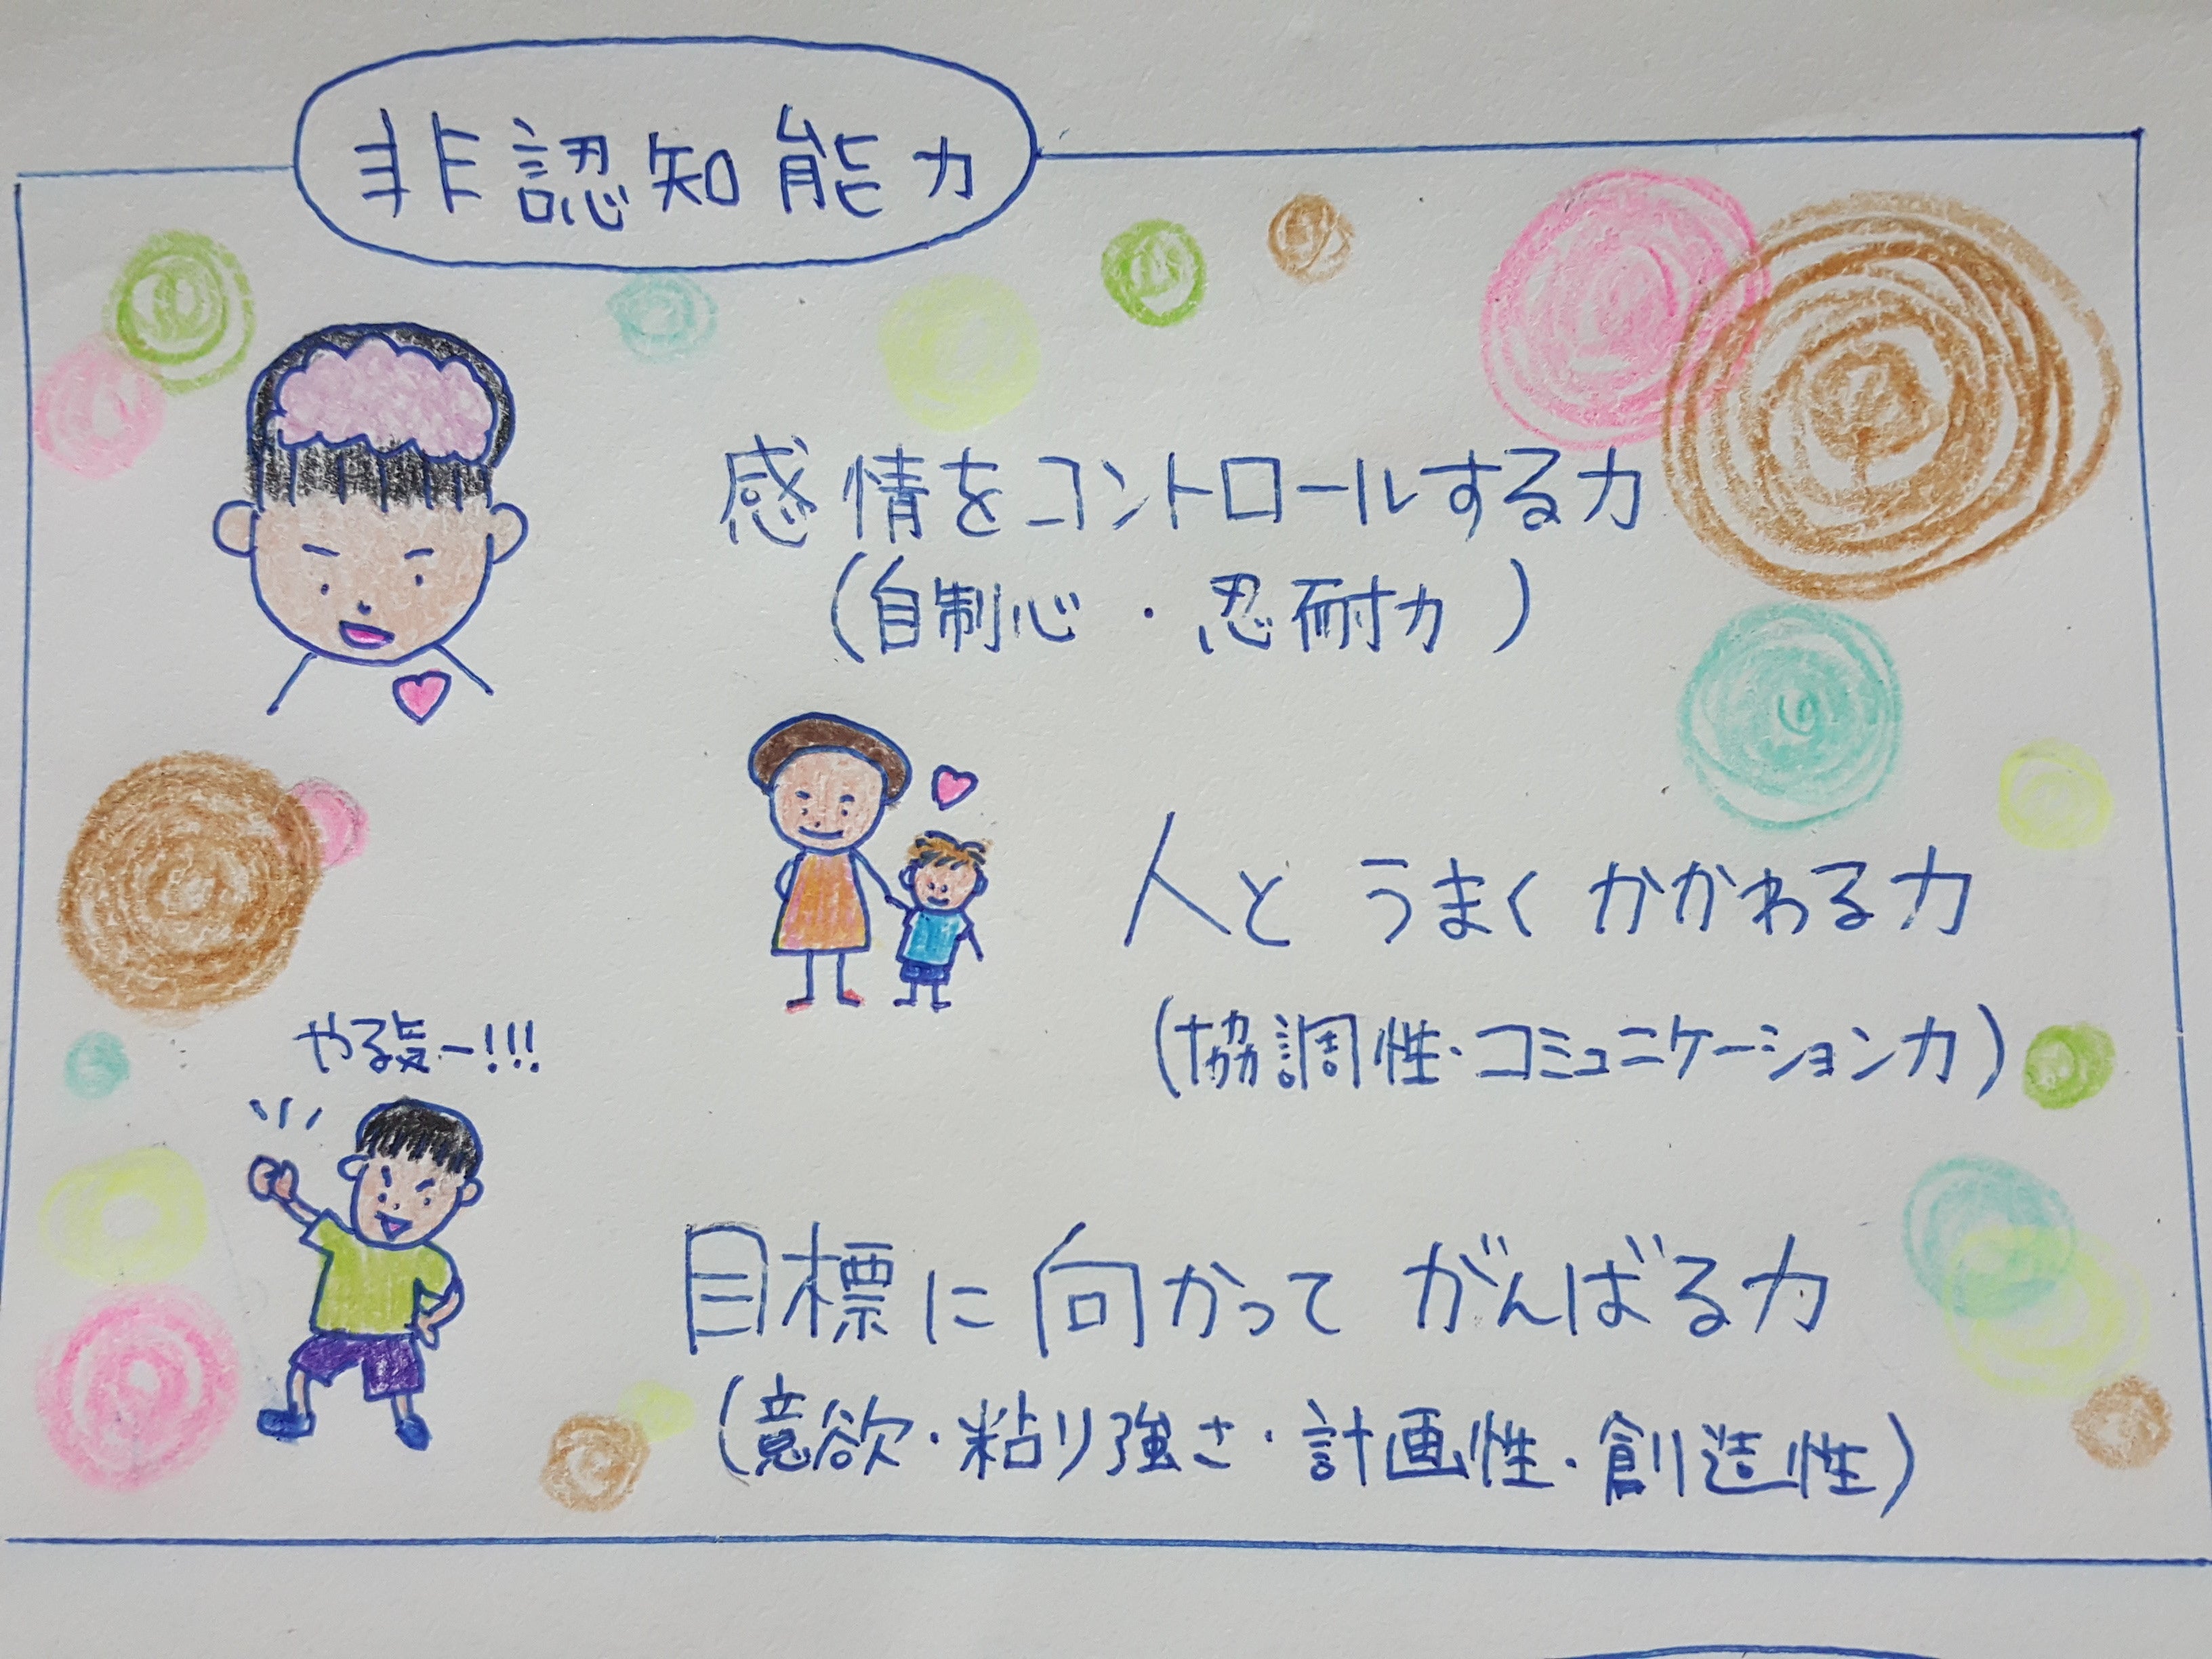 非認知能力
感情をコントロールする力
(自制心・忍耐力)
人とうまくかかわる力
(協調性・コミュニケーション力)
やる気ー!!!
目標に向かってがんばる力
(意欲・粘り強さ・計画性・創造性)